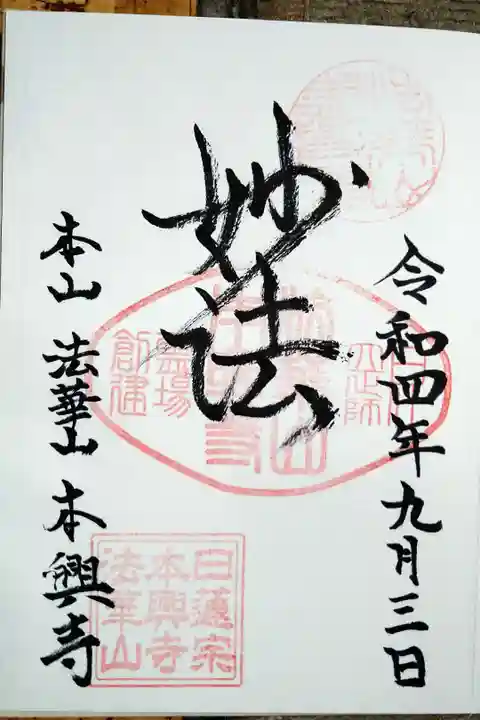 令和四年九月三日
妙法
本山 法華山 本興寺
霊場
創建
日蓮宗
本興寺
法華山